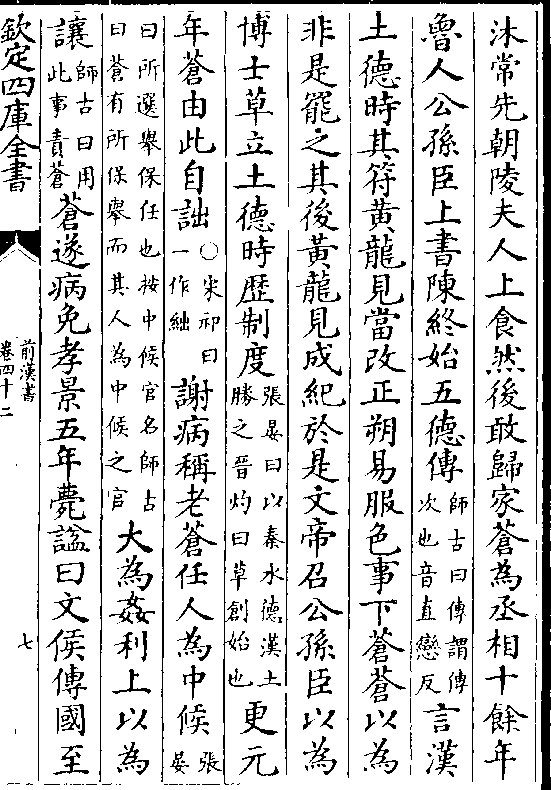 沐常先朝陵夫人上食然後敢歸家蒼為丞相十餘年
魯人公孫臣上書陳終始五德傳師古曰傳謂傳次也音直戀反言漢
土德時其符黃龍見當改正朔易服色事下蒼蒼以為
非是罷之其後黃龍見成紀於是文帝召公孫臣以為
博士草立土德時歴制度張晏曰以秦水德漢土勝之晉灼曰草創始也更元
年蒼由此自詘○宋祁曰一作絀謝病稱老蒼任人為中候張晏
曰所選舉保任也按中候官名師古曰蒼有所保舉而其人為中候之官大為姦利上以為
讓師古曰用此事責蒼蒼遂病免孝景五年薨諡曰文侯傳國至
欽定四庫全書
前漢書
卷四十二
七